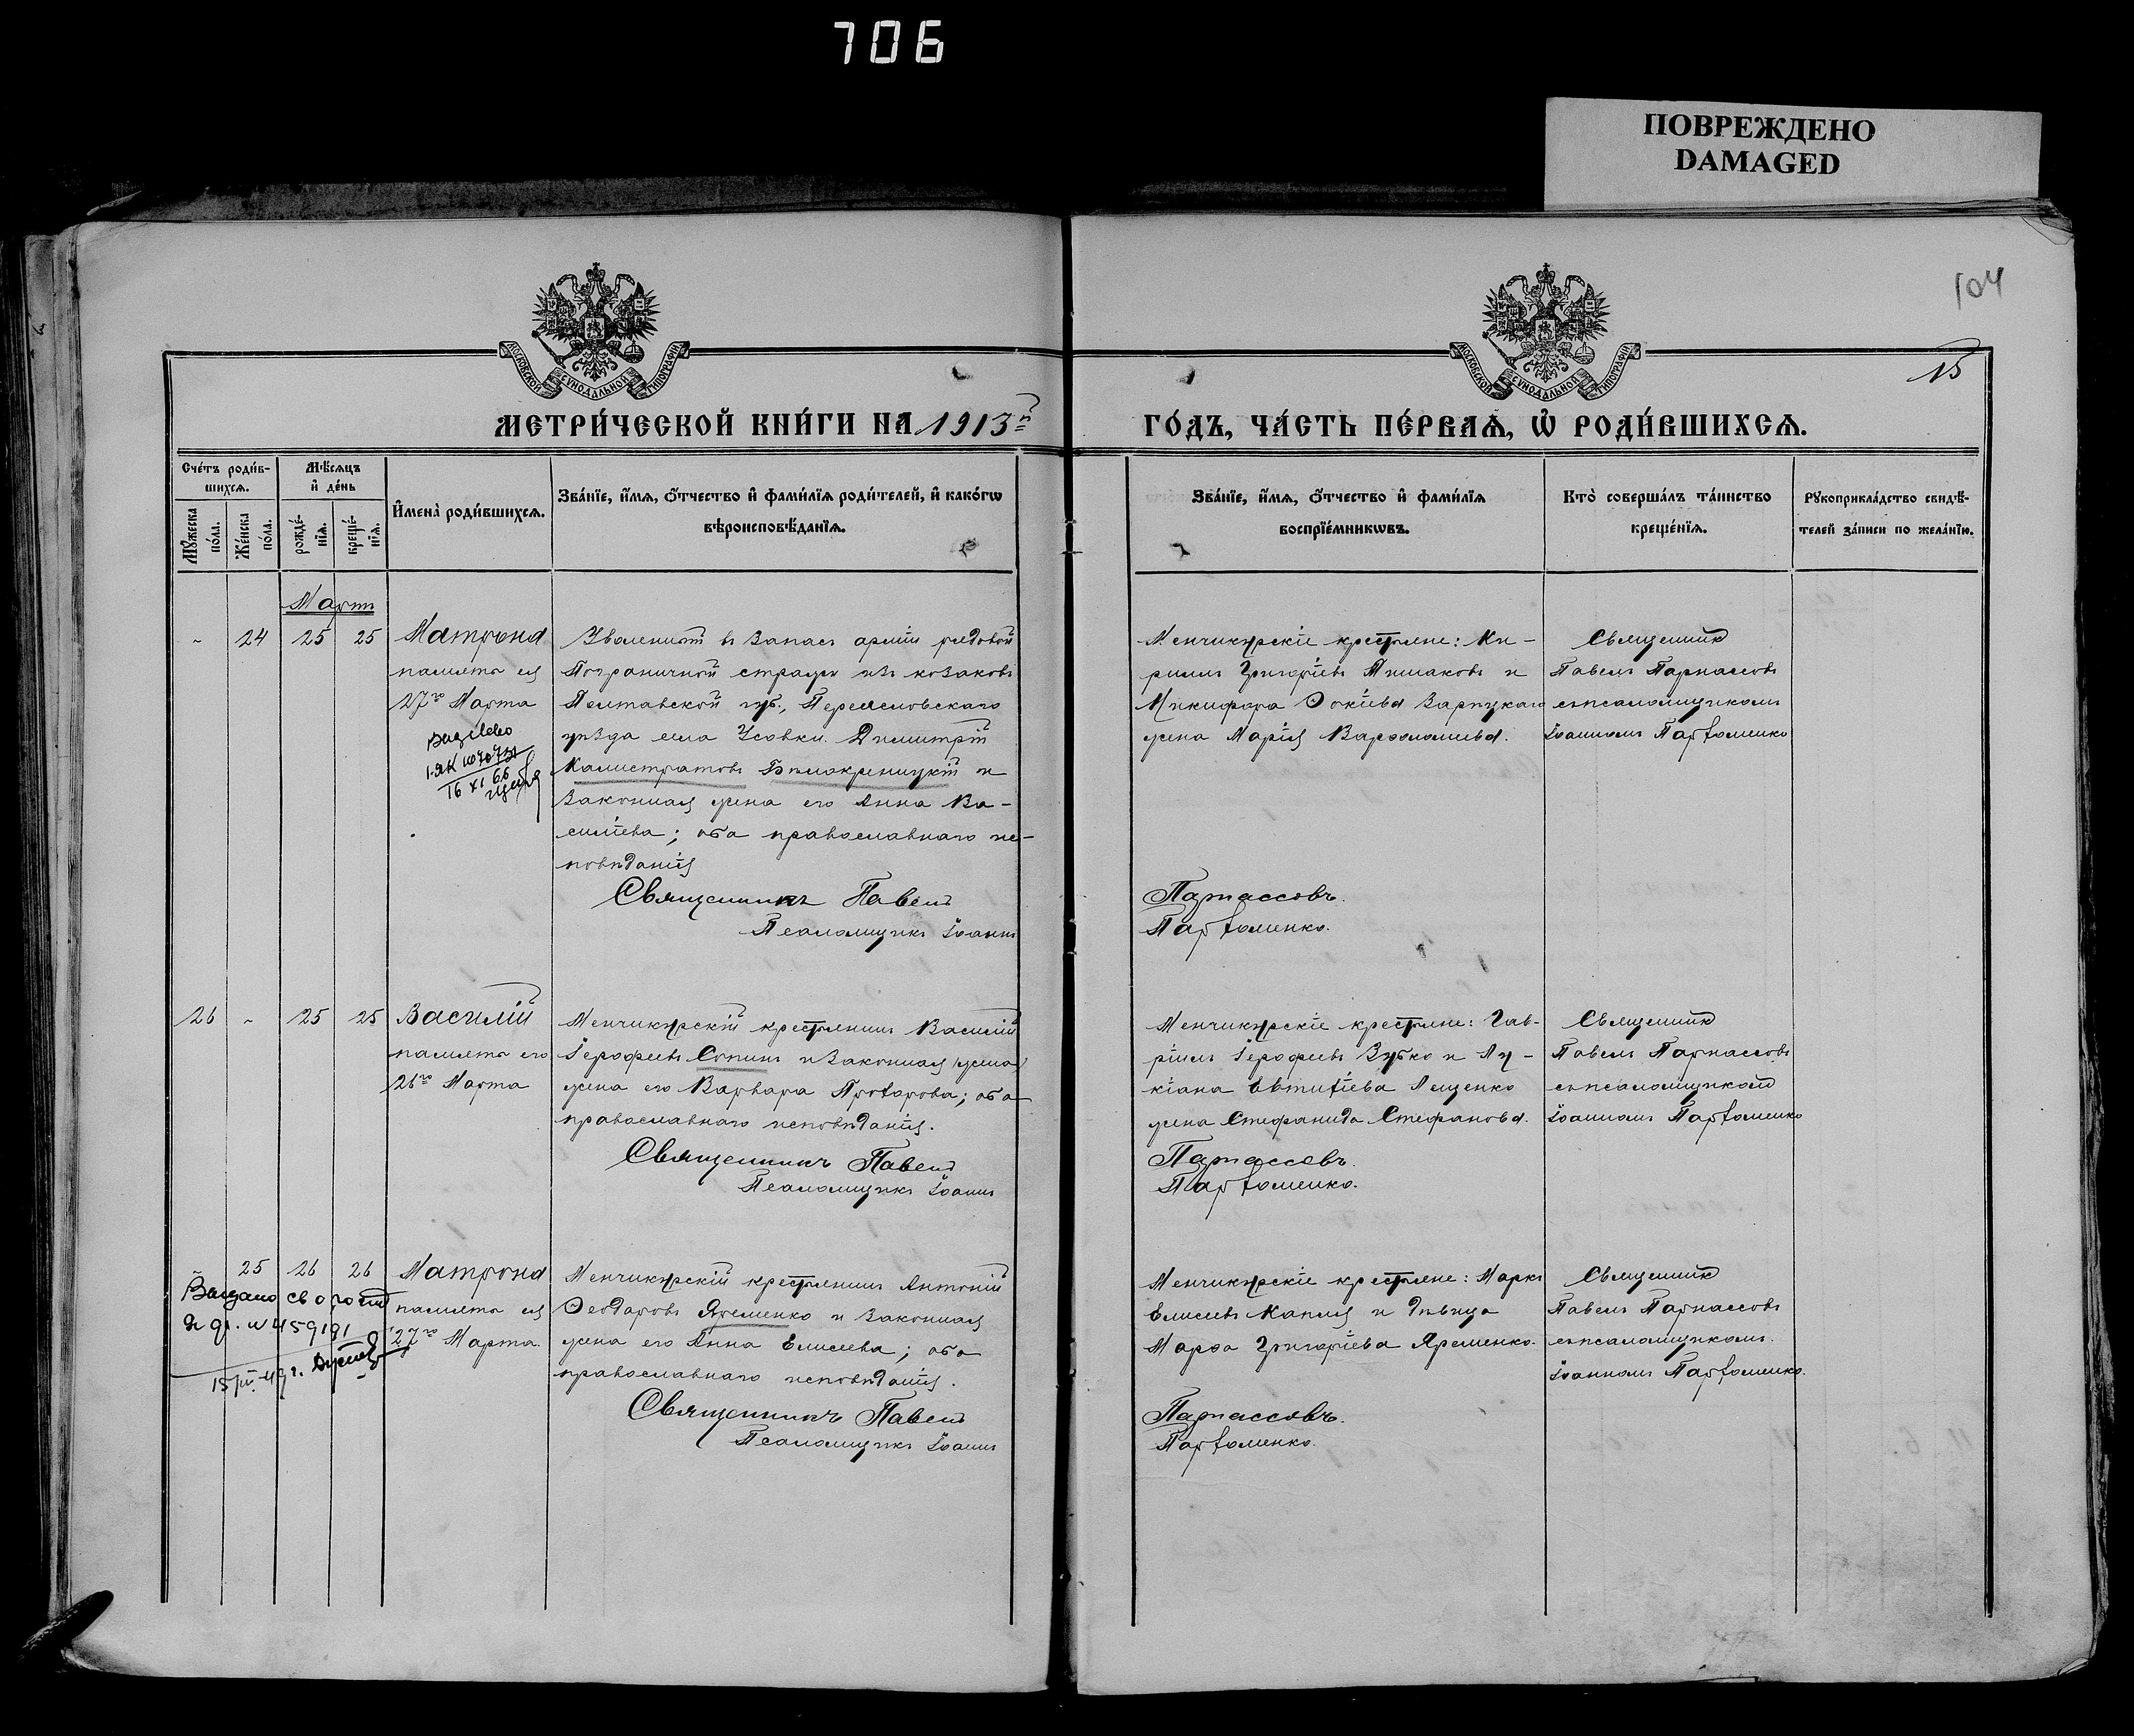 706
ПОВРЕЖДЕНО
DAMAGED
104
15
МОСКОВСКОЙ СУНОДАЛЬНОЙ ТИПОГРАФІИ
МОСКОВСКОЙ СУНОДАЛЬНОЙ ТИПОГРАФІИ
МЕТРИ́ЧЕСКОЙ КНИ́ГИ НА 1913й ГО́ДЪ, ЧА́СТЬ ПЕ́РВАѦ, Ѿ РОДИ́ВШИХСѦ.
Сче́тъ роди́в-
шихсѧ.
Мѣ́сѧцъ
и҆ де́нь
Мꙋ́жеска
по́ла.
Же́нска
по́ла.
рожде́-
нїѧ.
креще́-
нїѧ.
И҆мена̀ роди́вшихсѧ.
Зва́нїе, и҆́мѧ, ѻ҆́тчество и҆ фами́лїѧ роди́телей, и҆ како́гѡ
вѣроисповѣ́данїѧ.
Зва́нїе, и҆́мѧ, ѻ҆́тчество и҆ фами́лїѧ
воспрїе́мникѡвъ.
Кто̀ соверша́лъ та́инство
креще́нїѧ.
Рꙋкоприкла́дство свидѣ́-
телей за́писи по жела́нїю.
Мартъ
- 24 25 25
Матрона
память ея
27го Марта
16 XI 66
Уволенный в запас арміи рядовой
Пограничной стражи изъ козаковъ
Полтавской губ., Переяславскаго
уѣзда села Усовки Димитрій
Калистратовъ Бѣлокриницкій и
законная жена его Анна Ва-
силіева; оба православнаго ис-
повѣданія
Священникъ Павелъ
Псаломщикъ Іоаннъ
Менчикурскіе крестьяне: Ки-
риллъ Григоріевъ Пишаковъ и
Никифора Ѳокіева Зарпуцкаго
жена Марія Варѳоломеева.
Парнассовъ.
Парѳоменко.
Священникъ
Павелъ Парнассовъ
съ псаломщикомъ
Іоанномъ Парѳоменко
26 - 25 25
Василій
память его
26го Марта
Менчикурскій крестьянинъ Василій
Іерофеевъ Сопинъ и законная жена
жена его Варвара Протарова; оба
православнаго исповѣданія.
Священникъ Павелъ
Псаломщикъ Іоаннъ
Менчикурскіе крестьяне: Гав-
ріилъ Іерофеевъ Зубко и Лу-
кіана Евтихіева Лещенко
жена Стефанида Стефанова.
Парнассовъ.
Парѳоменко.
Священникъ
Павелъ Парнассовъ
съ псаломщикомъ
Іоанномъ Парѳоменко
- 25 26 26
Матрона
память ея
27го Марта.
Выдано св о рожд
459191
Менчикурскій крестьянинъ Антоній
Ѳеодоровъ Яременко и законная
жена его Анна Елисеева; оба
православнаго исповѣданія.
Священникъ Павелъ
Псаломщикъ Іоаннъ
Менчикурскіе крестьяне: Маркъ
Елисеевъ Капля и дѣвица
Марѳа Григоріева Яременко.
Парнассовъ.
Парѳоменко.
Священникъ
Павелъ Парнассовъ
съ псаломщикомъ.
Іоанномъ Парѳоменко.